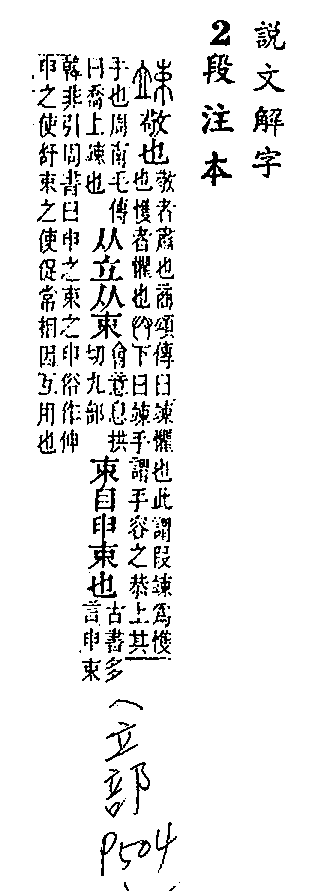 說文解字
2段注本
竦敬也敬者肅也商頌傳曰竦懼也此謂叚竦爲愯
也愯者懼也𠬞下曰竦手謂手容之恭上其
手也周南毛傳曰喬上竦也从立从束會意息拱切九部束自申束也古書多言申束
韓非引周書曰申之束之申俗作伸
申之使舒束之使促常相因互用也
立部
P504